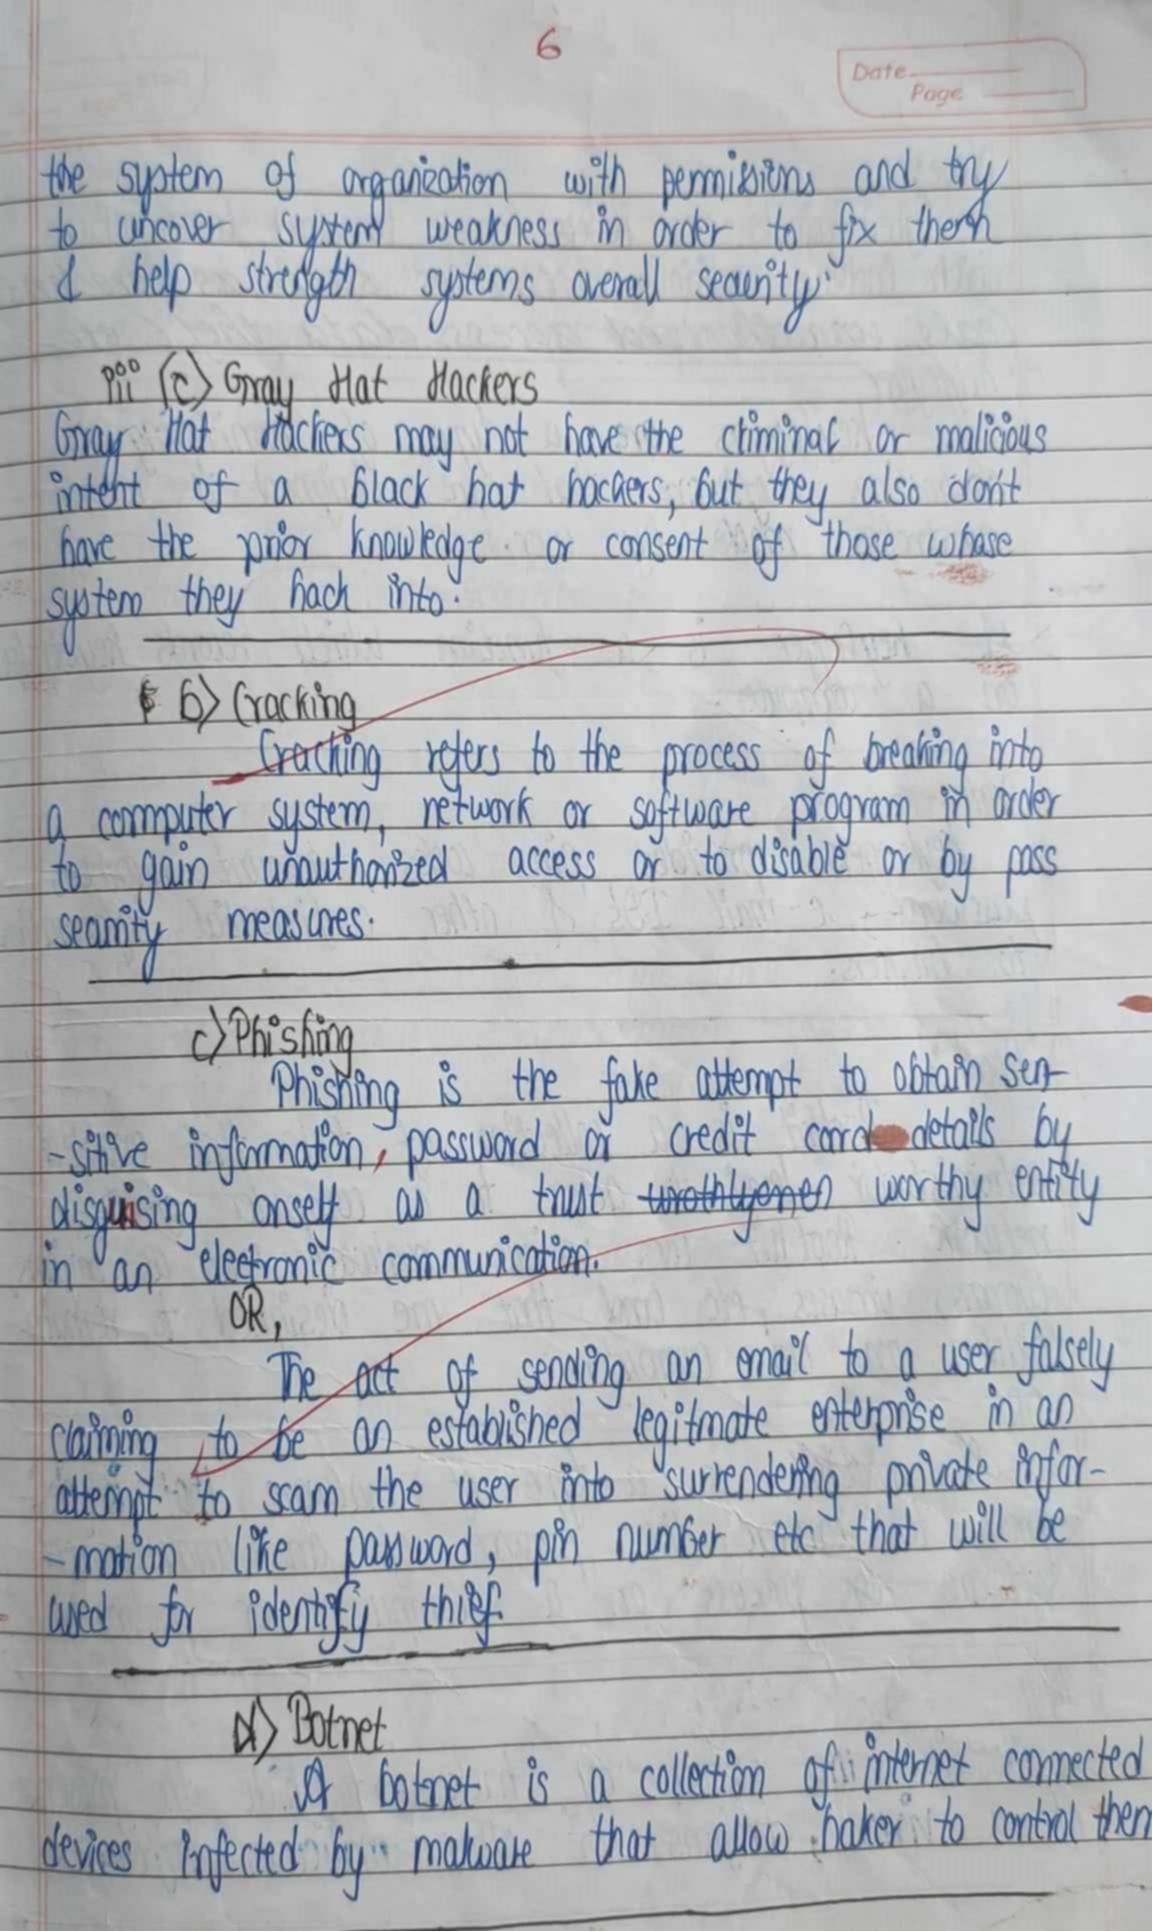 6
Date
Page
the system of organization with permissions and try
to uncover system weakness in order to fix them
& help strength systems overall security.
iii (c) Gray Hat Hackers
Gray Hat Hackers may not have the criminal or malicious
intent of a black hat hackers, but they also don't
have the prior knowledge or consent of those whose
system they hack into.
b) Cracking
Cracking refers to the process of breaking into
a computer system, network or software program in order
to gain unauthorized access or to disable or by pass
security measures.
c) Phishing
Phishing is the fake attempt to obtain sen-
-sitive information, password or credit card details by
disguising onself as a trust worthy entity
in an electronic communication.
OR,
The act of sending an email to a user falsely
claiming to be an established legitmate enterprise in an
attempt to scam the user into surrendering private infor-
-mation like password, pin number etc that will be
used for identify thief.
d) Botnet
A botnet is a collection of internet connected
devices infected by malware that allow haker to control them